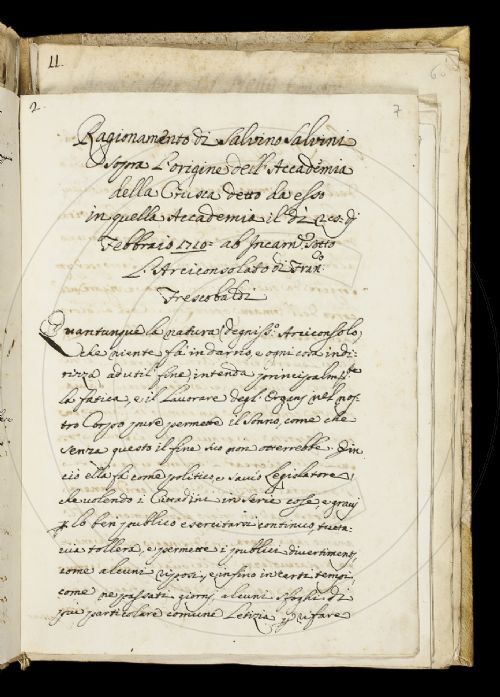 11.
60
2.
7
Ragionamento di Salvino Salvini
Sopra l'origine dell'Accademia
della Crusca detto da esso
in quella Accademia il dì 20. di
Febbraio 1710. ab Incarn.e Sotto
L'Arciconsolato di Fran.co
Frescobaldi
Quantunque la natura, degniss.o Arciconsolo,
che niente fà indarno, e ogni cosa indi-
rizza ad util fine, intenda principalm.te
la fatica, e il lavorare degl'Organj nel nos-
tro Corpo pure permette il sonno, come che
senza questo il fine suo non otterrebbe. In
ciò ella fà come politico, e savio Legislatore,
che volendo i Cittadini in serie cose, e gravj
p lo ben publico esercitarsi continuo, tutta-
via tollera, e permette i publici divertimentj,
come alcuni riposi, e infino in certi tempi,
come ne passati giornj alcuni sfoghi di
più particolare comune Letizia p rifare